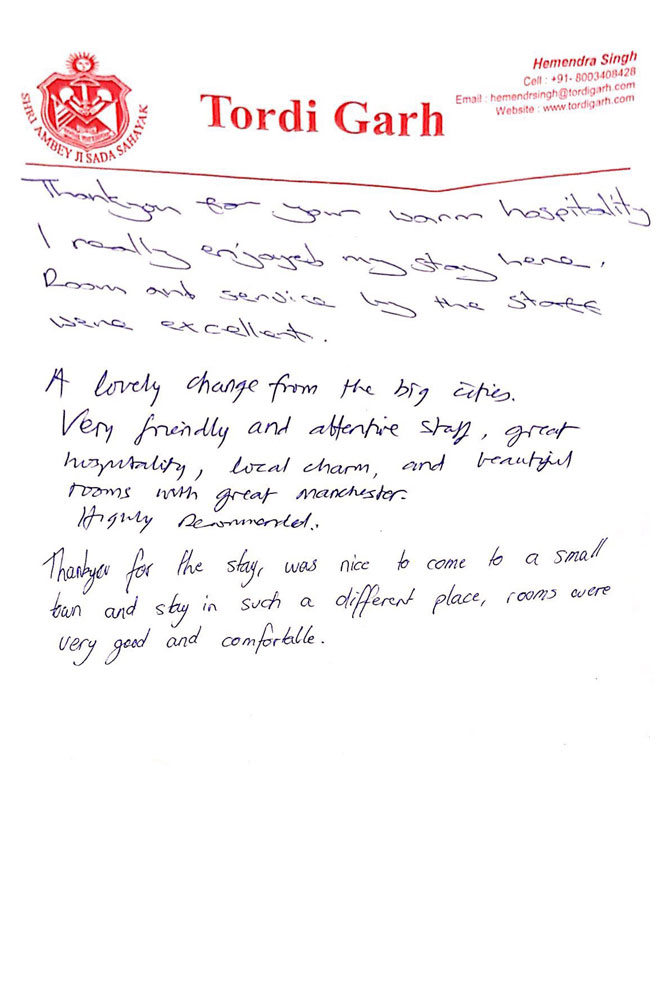 Hemendra Singh
Cell : +91- 8003408428
Email : hemendrsingh@tordigarh.com
Website : www.tordigarh.com
Tordi Garh
SHRI AMBEY JI SADA SAHAYAK
Thankyou for your warm hospitality
I really enjoyed my stay here.
Room and service by the staff
were excellent.
A lovely change from the big cities.
Very friendly and attentive staff, great
hospitality, local charm, and beautiful
rooms with great Manchester.
Highly Recommended.
Thankyou for the stay, was nice to come to a small
town and stay in such a different place, rooms were
very good and comfortable.